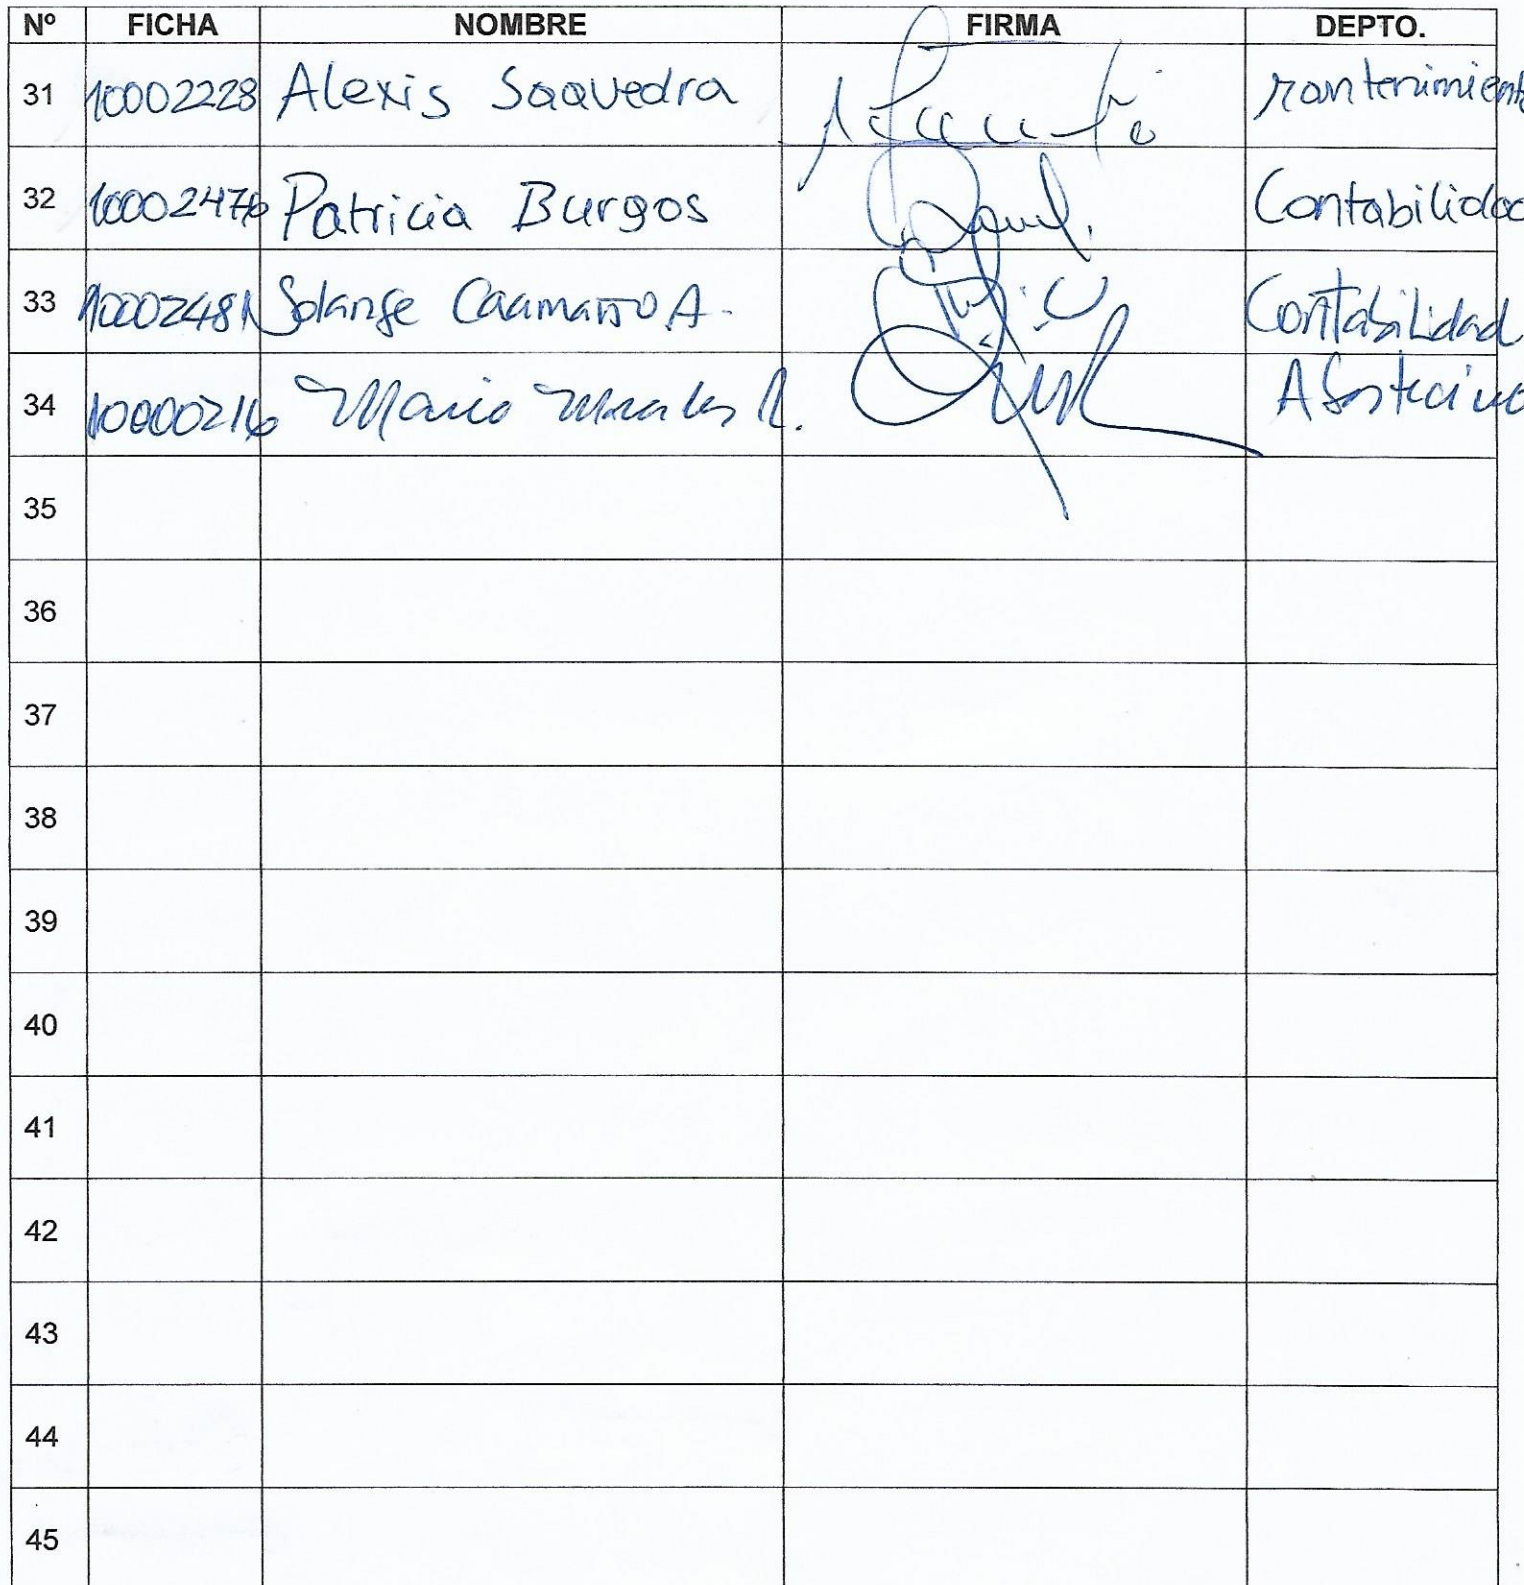 Nº FICHA NOMBRE FIRMA DEPTO.
31 10002228 Alexis Saavedra mantenimiento
32 10002476 Patricia Burgos Contabilidad
33 10002481 Solange Caamaño A. Contabilidad
34 10000216 Mario Morales R.
35
36
37
38
39
40
41
42
43
44
45